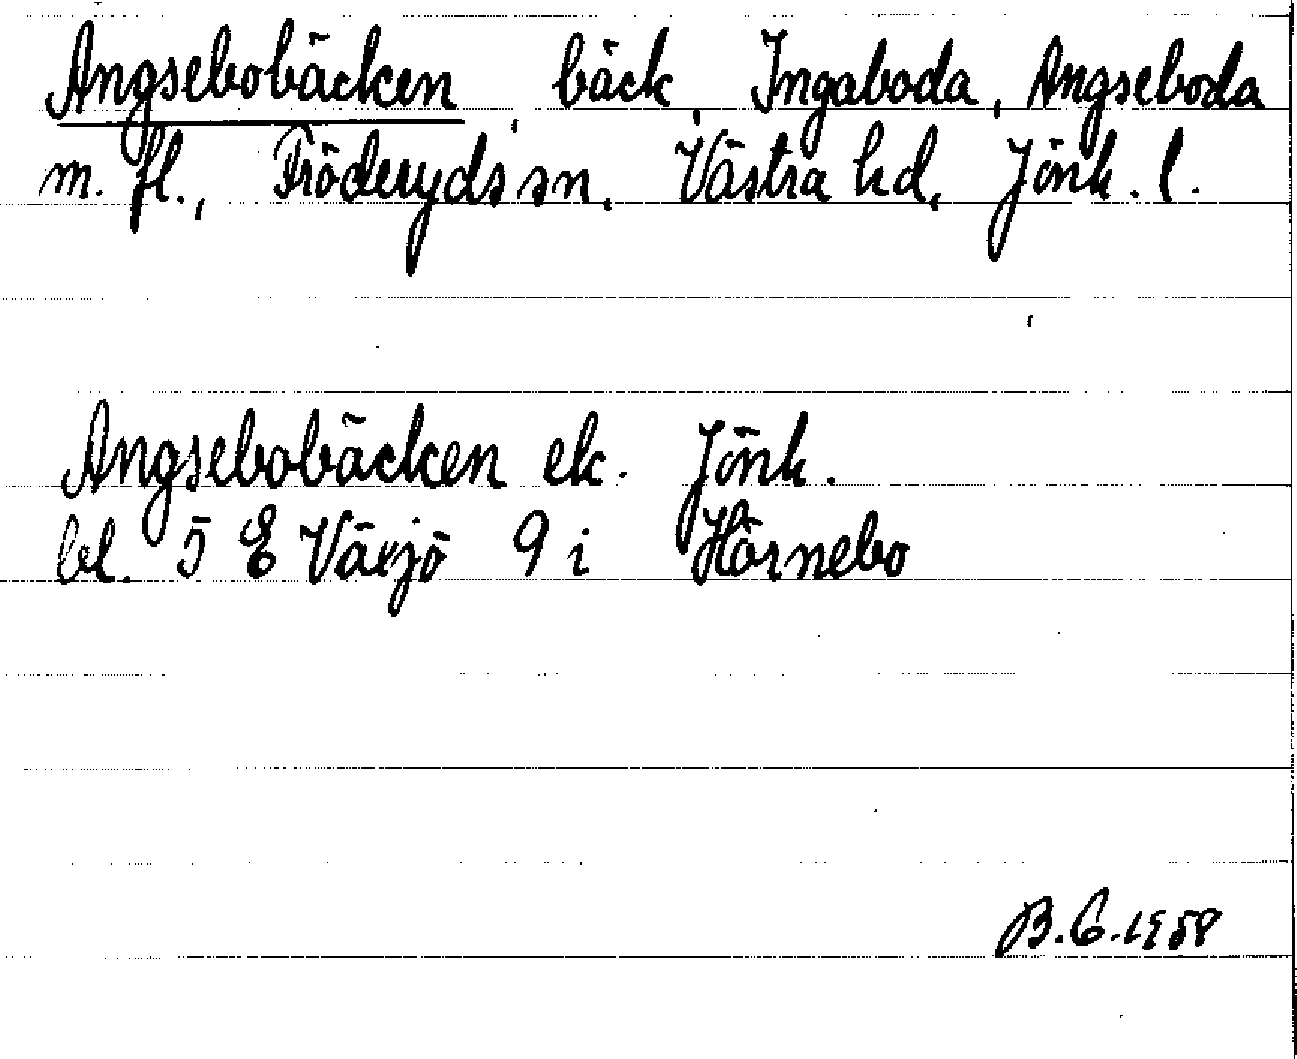 Angsebobäcken, bäck, Ingaboda, Angseboda
m. fl., Fröderyds sn, Västra hd, Jönk. l.
Angsebobäcken ek. Jönk.
bl. 5 E Växjö 9 i Hörnebo
B.G. 1958